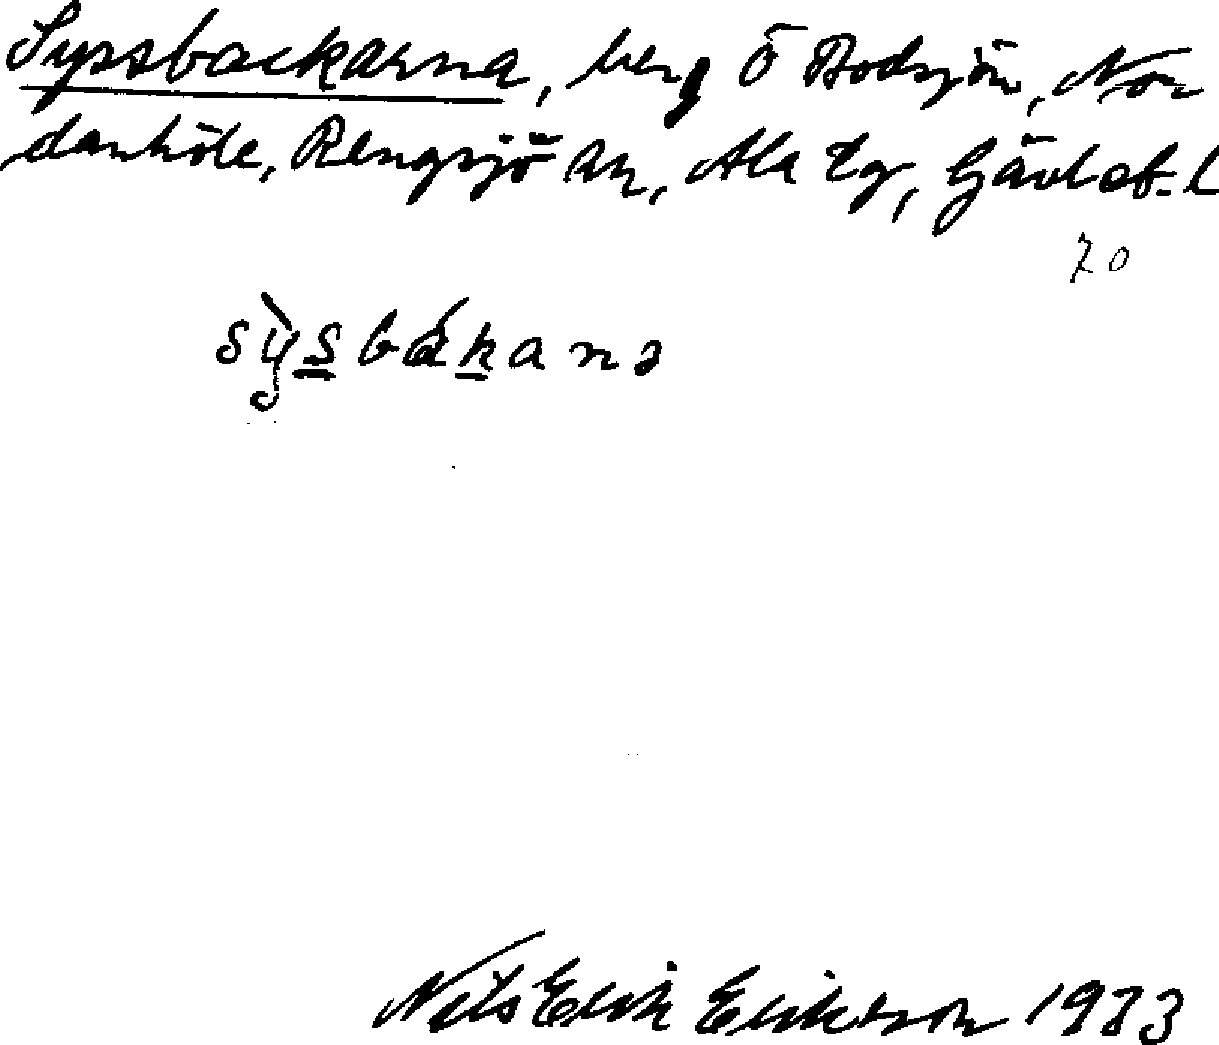 Syssbackarna, berg Ö Bodsjön, Nor
danhöle, Rengsjö sn, Ala tg, Gävleb. l
70
sỳs̲bák̲anə
Nils Erik Erikson 1973